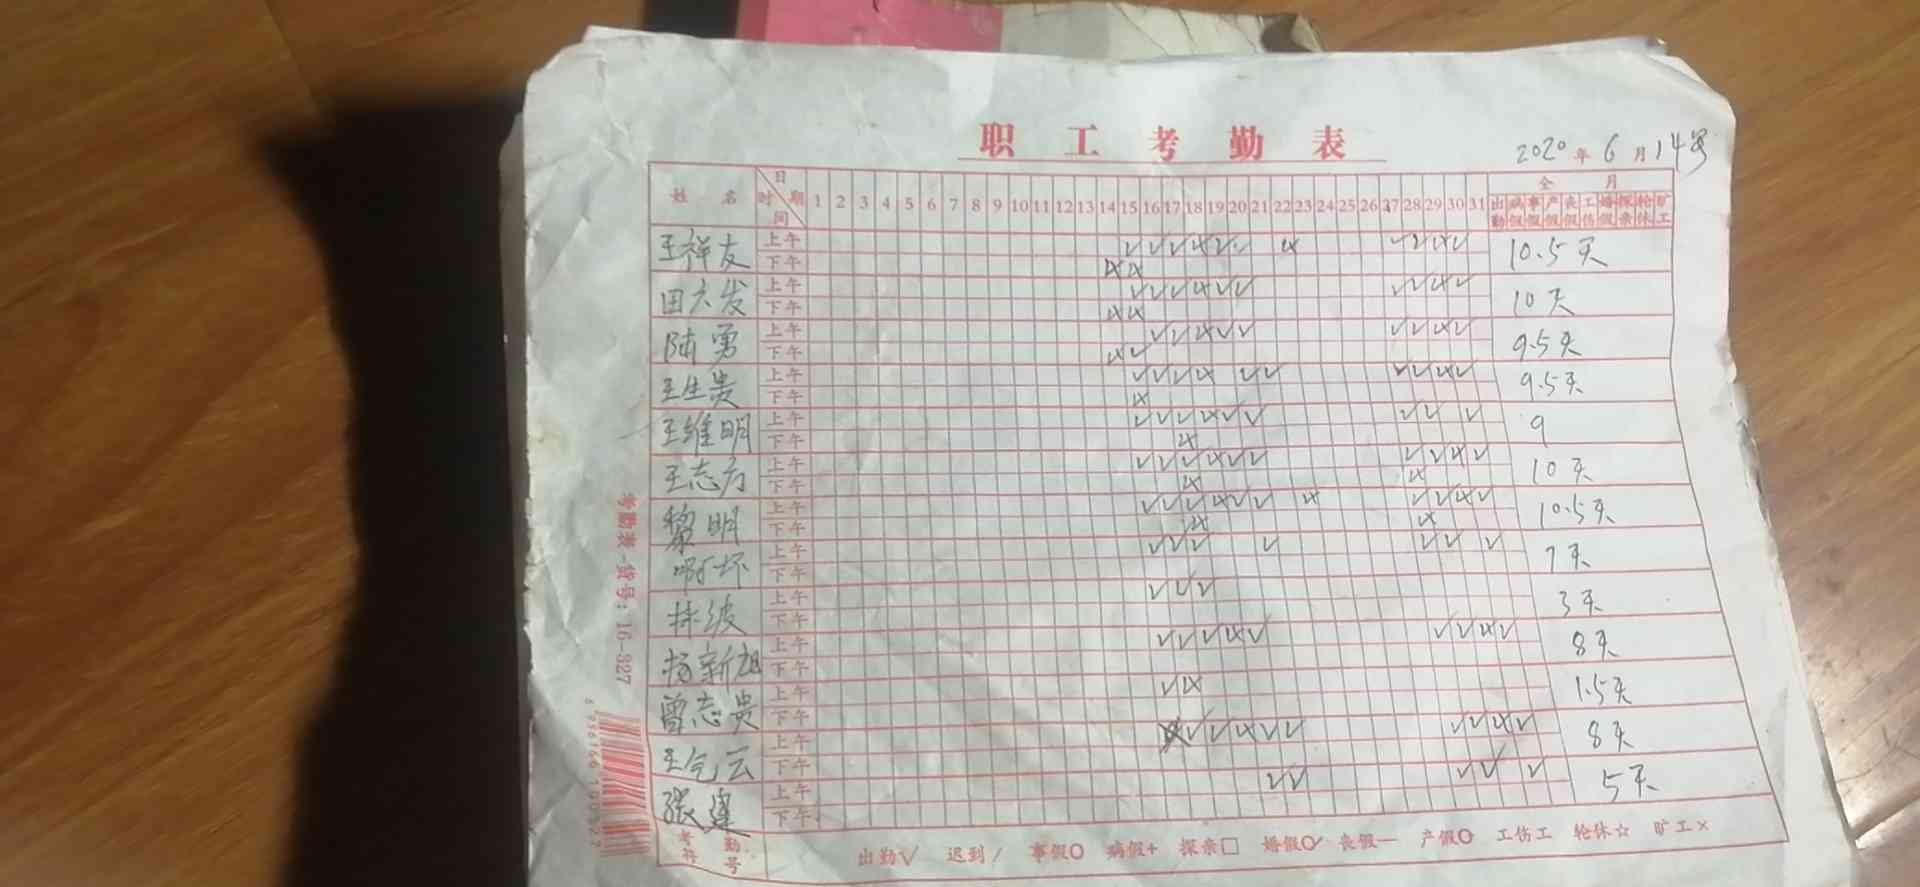 职工考勤表
2020年6月14号
姓名 日期 时间 1 2 3 4 5 6 7 8 9 10 11 12 13 14 15 16 17 18 19 20 21 22 23 24 25 26 27 28 29 30 31 全月
出勤 病假 事假 产假 丧假 工伤 婚假 探亲 轮休 旷工
王祥友 上午 ✓ ✓ ✓ ✓ ✓ ✓ ✓ ✓ ✓ 10.5天
下午
田六发 上午 ✓ ✓ ✓ ✓ ✓ ✓ ✓ ✓ 10天
下午
陆勇 上午 ✓ ✓ ✓ ✓ ✓ ✓ ✓ 9.5天
下午 ✓
王生贵 上午 ✓ ✓ ✓ ✓ ✓ ✓ ✓ ✓ 9.5天
下午
王维明 上午 ✓ ✓ ✓ ✓ ✓ ✓ ✓ ✓ 9
下午
王志方 上午 ✓ ✓ ✓ ✓ ✓ ✓ ✓ ✓ 10天
下午
黎明 上午 ✓ ✓ ✓ ✓ ✓ ✓ ✓ ✓ 10.5天
下午
上午 ✓ ✓ ✓ ✓ ✓ ✓ ✓ 7天
下午
林波 上午 ✓ ✓ ✓ 3天
下午
杨新旭 上午 ✓ ✓ ✓ ✓ ✓ ✓ ✓ 8天
下午
曾志贵 上午 ✓ 1.5天
下午
上午 ✓ ✓ ✓ ✓ ✓ ✓ ✓ 8天
下午
张建 上午 ✓ ✓ ✓ ✓ ✓ 5天
下午
考勤符号 出勤✓ 迟到/ 事假O 病假+ 探亲□ 婚假 丧假— 产假 工伤工 轮休☆ 旷工×
考勤表-货号：16-327